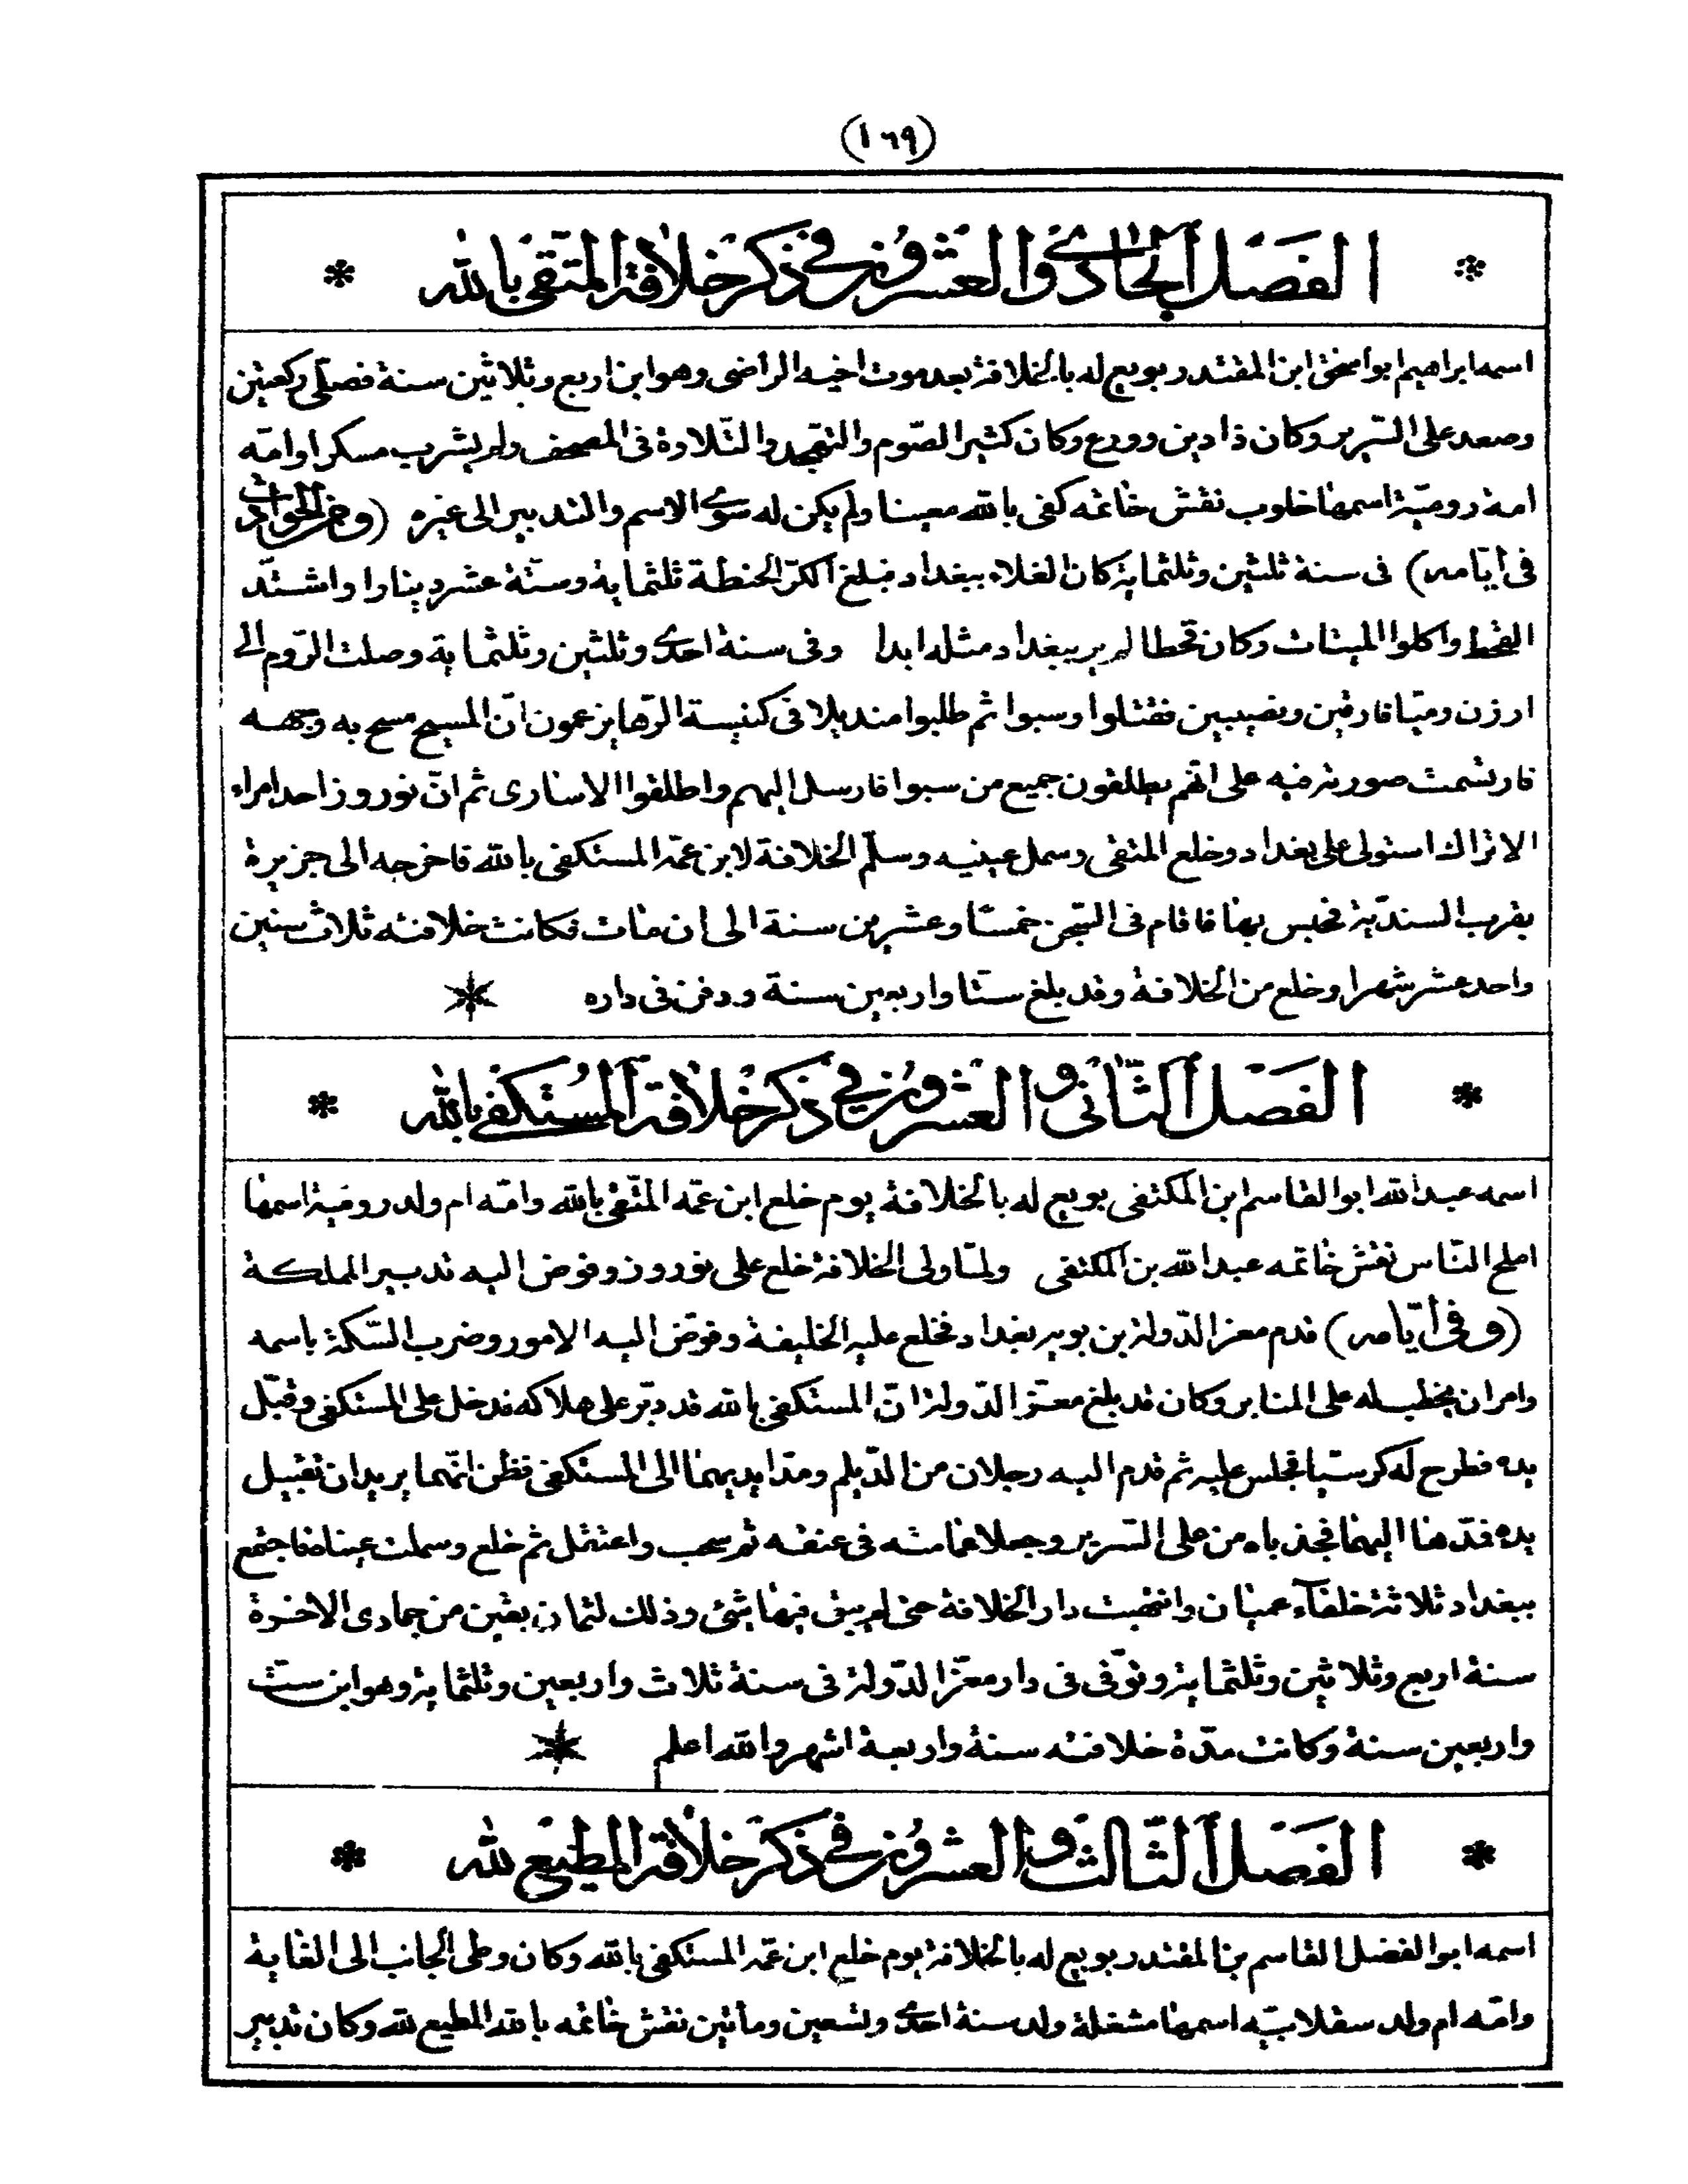 (١٦٩)
* الفصل الحادى والعشرون فى ذكر خلافة المتقى بالله *
اسمه ابراهيم ابو اسحق ابن المقتدر بويع له بالخلافة بعد موت اخيه الراضى وهو ابن اربع وثلاثين سنة فصلّى ركعتين
وصعد على السّرير وكان ذا دين وورع وكان كثير الصّوم والتهجد والتّلاوة فى المصحف ولم يشرب مسكرا وامّه
امة روميّة اسمها خلوب نقش خاتمه كفى بالله معينا ولم يكن له سوى الاسم والتدبير الى غيره (ومن الحوادث
فى ايّامه) فى سنة ثلثين وثلثماية كان الغلاء ببغداد فبلغ الكرّ الحنطة ثلثماية وستة عشر دينارا واشتدّ
القحط واكلوا الميتات وكان قحطا لم ير ببغداد مثله ابدا وفى سنة احدى وثلثين وثلثماية وصلت الرّوم الى
ارزن وميّافارقين ونصيبين فقتلوا وسبوا ثم طلبوا منديلا فى كنيسة الرّها يزعمون انّ المسيح مسح به وجهه
فارتسمت صورته فيه على انهم يطلقون جميع من سبوا فارسل اليهم واطلقوا الاسارى ثم انّ نوروز احد امراء
الاتراك استولى على بغداد وخلع المتقى وسمل عينيه وسلّم الخلافة لابن عمّه المستكفى بالله فاخرجه الى جزيرة
بقرب السنديّة فحبس بها فاقام فى السّجن خمسا وعشرين سنة الى ان مات فكانت خلافته ثلاث سنين
واحد عشر شهرا وخلع من الخلافة وقد بلغ ستّا واربعين سنة ودفن فى داره *
* الفصل الثّانى والعشرون فى ذكر خلافة المستكفى بالله *
اسمه عبد الله ابو القاسم ابن المكتفى بويع له بالخلافة يوم خلع ابن عمّه المتّقى بالله وامّه ام ولد روميّة اسمها
املح النّاس نقش خاتمه عبد الله بن المكتفى ولمّا ولى الخلافة خلع على نوروز وفوض اليه تدبير المملكة
(وفى ايّامه) قدم معز الدّولة بن بويه بغداد فخلع عليه الخليفة وفوّض اليه الامور وضرب السّكة باسمه
وامر ان يخطب له على المنابر وكان قد بلغ معزّ الدّولة انّ المستكفى بالله قد دبّر على هلاكه فدخل على المستكفى وقبّل
يده فطرح له كرسيّا فجلس عليه ثم قدم اليه رجلان من الدّيلم ومدّا يديهما الى المستكفى فظن انّهما يريدان تقبيل
يده فمدّها اليهما فجذباه من على السّرير وجعلا عمامته فى عنقه ثم سحب واعتقل ثم خلع وسملت عيناه فاجتمع
ببغداد ثلاثة خلفآء عميان وانتهبت دار الخلافة حتى لم يبق فيها شئ وذلك لثمان بقين من جمادى الاخرة
سنة اربع وثلاثين وثلثماية وتوّفى فى دار معزّ الدّولة فى سنة ثلاث واربعين وثلثماية وهو ابن ستّ
واربعين سنة وكانت مدّة خلافته سنة واربعة اشهر والله اعلم *
* الفصل الثّالث والعشرون فى ذكر خلافة المطيع لله *
اسمه ابو الفضل القاسم بن المقتدر بويع له بالخلافة يوم خلع ابن عمّه المستكفى بالله وكان وطى الجانب الى الغاية
وامّه ام ولد سقلابيّه اسمها مشغلة ولد سنة احدى وتسعين ومأتين نقش خاتمه بالله المطيع لله وكان تدبير